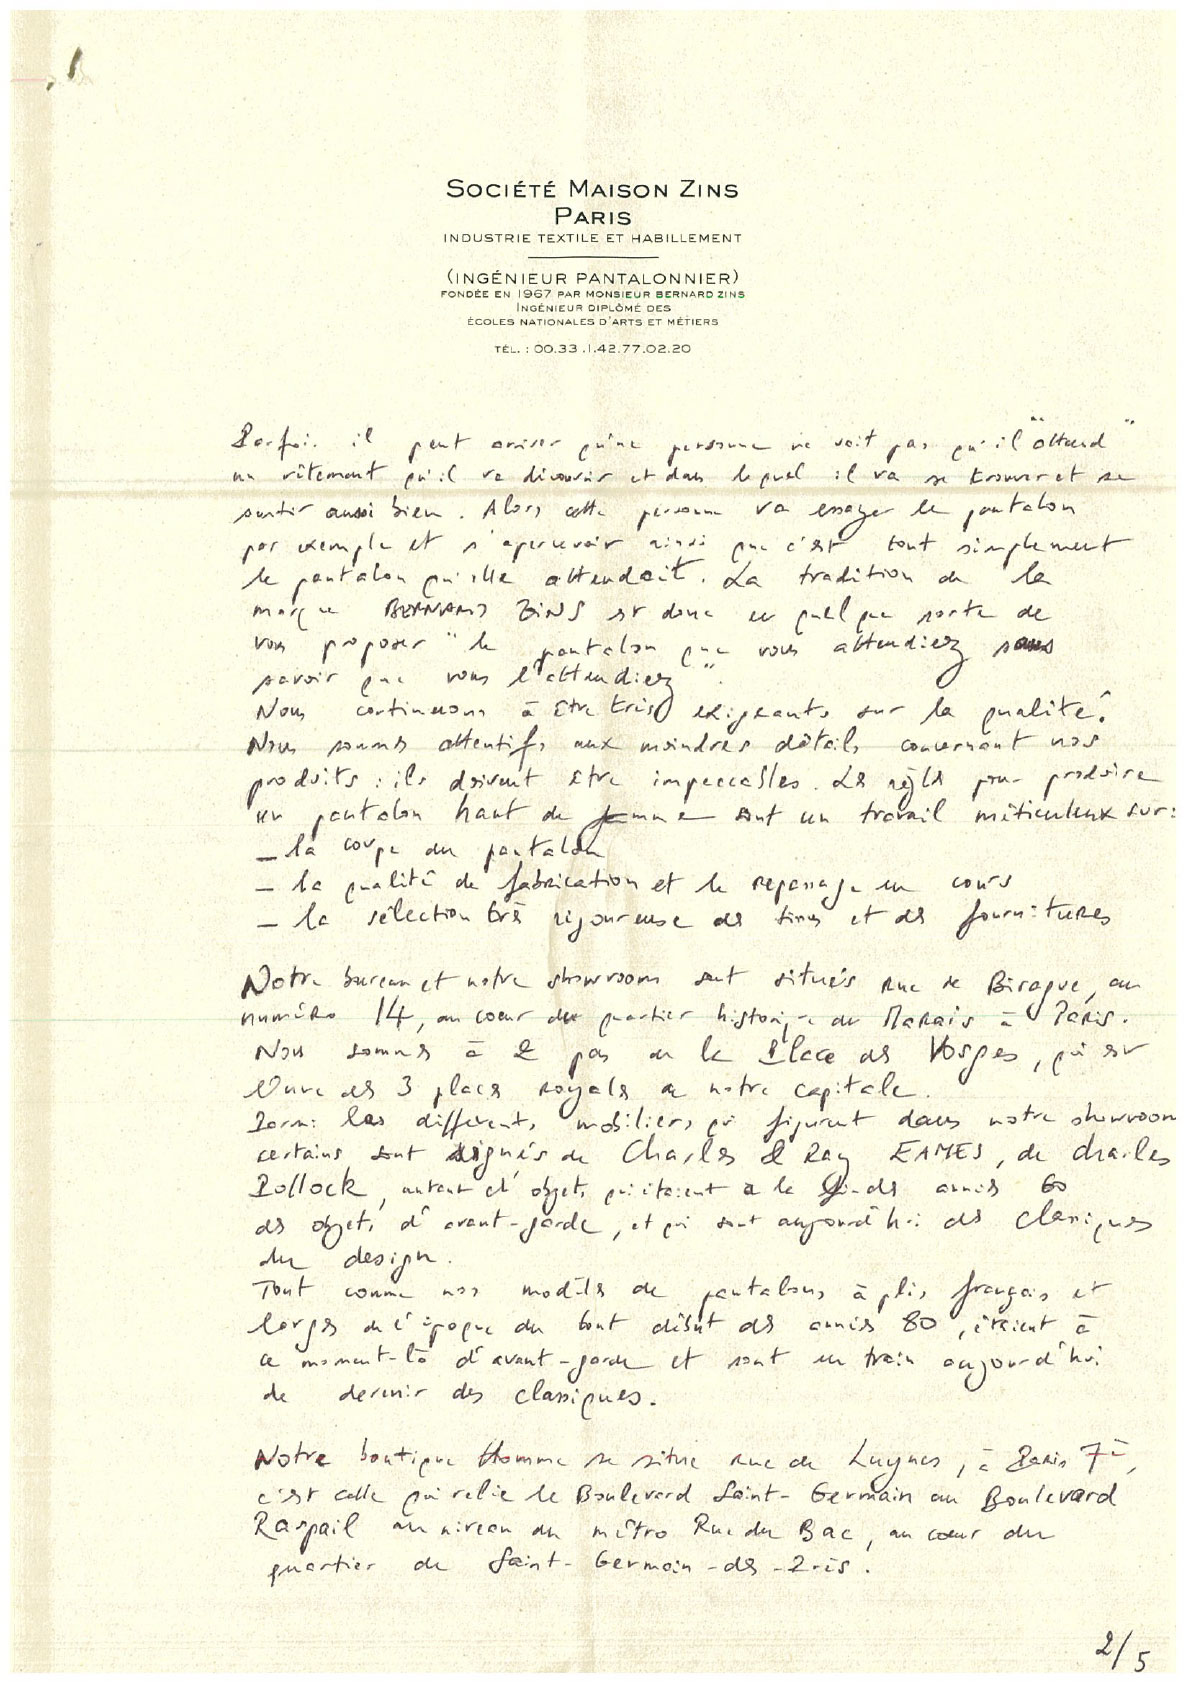 SOCIÉTÉ MAISON ZINS
PARIS
INDUSTRIE TEXTILE ET HABILLEMENT
(INGÉNIEUR PANTALONNIER)
FONDÉE EN 1967 PAR MONSIEUR BERNARD ZINS
INGÉNIEUR DIPLÔMÉ DES
ÉCOLES NATIONALES D'ARTS ET MÉTIERS
TÉL. : 00.33.1.42.77.02.20
Parfois il peut arriver qu'une personne ne voit pas qu'il "attend"
un vêtement qu'il va découvrir et dans lequel il va se trouver et se
sentir aussi bien. Alors cette personne va essayer le pantalon
par exemple et s'apercevoir ainsi que c'est tout simplement
le pantalon qu'elle attendait. La tradition de la
marque BERNARD ZINS est donc en quelque sorte de
vous proposer "le pantalon que vous attendiez sans
savoir que vous l'attendiez".
Nous continuons à être très exigeants sur la qualité.
Nous sommes attentifs aux moindres détails concernant nos
produits : ils doivent être impeccables. Les règles pour produire
un pantalon haut de gamme sont un travail méticuleux sur :
– la coupe du pantalon
– la qualité de fabrication et le repassage en cours
– la sélection très rigoureuse des tissus et des fournitures
Notre bureau et notre showroom sont situés rue de Birague, au
numéro 14, au coeur du quartier historique du Marais à Paris.
Nous sommes à 2 pas de la Place des Vosges, qui est
l'une des 3 places royales de notre capitale.
Parmi les différents mobiliers qui figurent dans notre showroom
certains sont signés de Charles & Ray EAMES, de Charles
Pollock, autant d'objets qui étaient à la fin des années 60
des objets d'avant-garde, et qui sont aujourd'hui des classiques
du design.
Tout comme nos modèles de pantalons à plis français et
larges de l'époque du tout début des années 80, étaient à
ce moment-là d'avant-garde et sont en train aujourd'hui
de devenir des classiques.
Notre boutique Homme se situe rue de Luynes, à Paris 7è,
c'est celle qui relie le Boulevard Saint-Germain au Boulevard
Raspail au niveau du métro Rue du Bac, au coeur du
quartier de Saint-Germain-des-Prés.
2/5